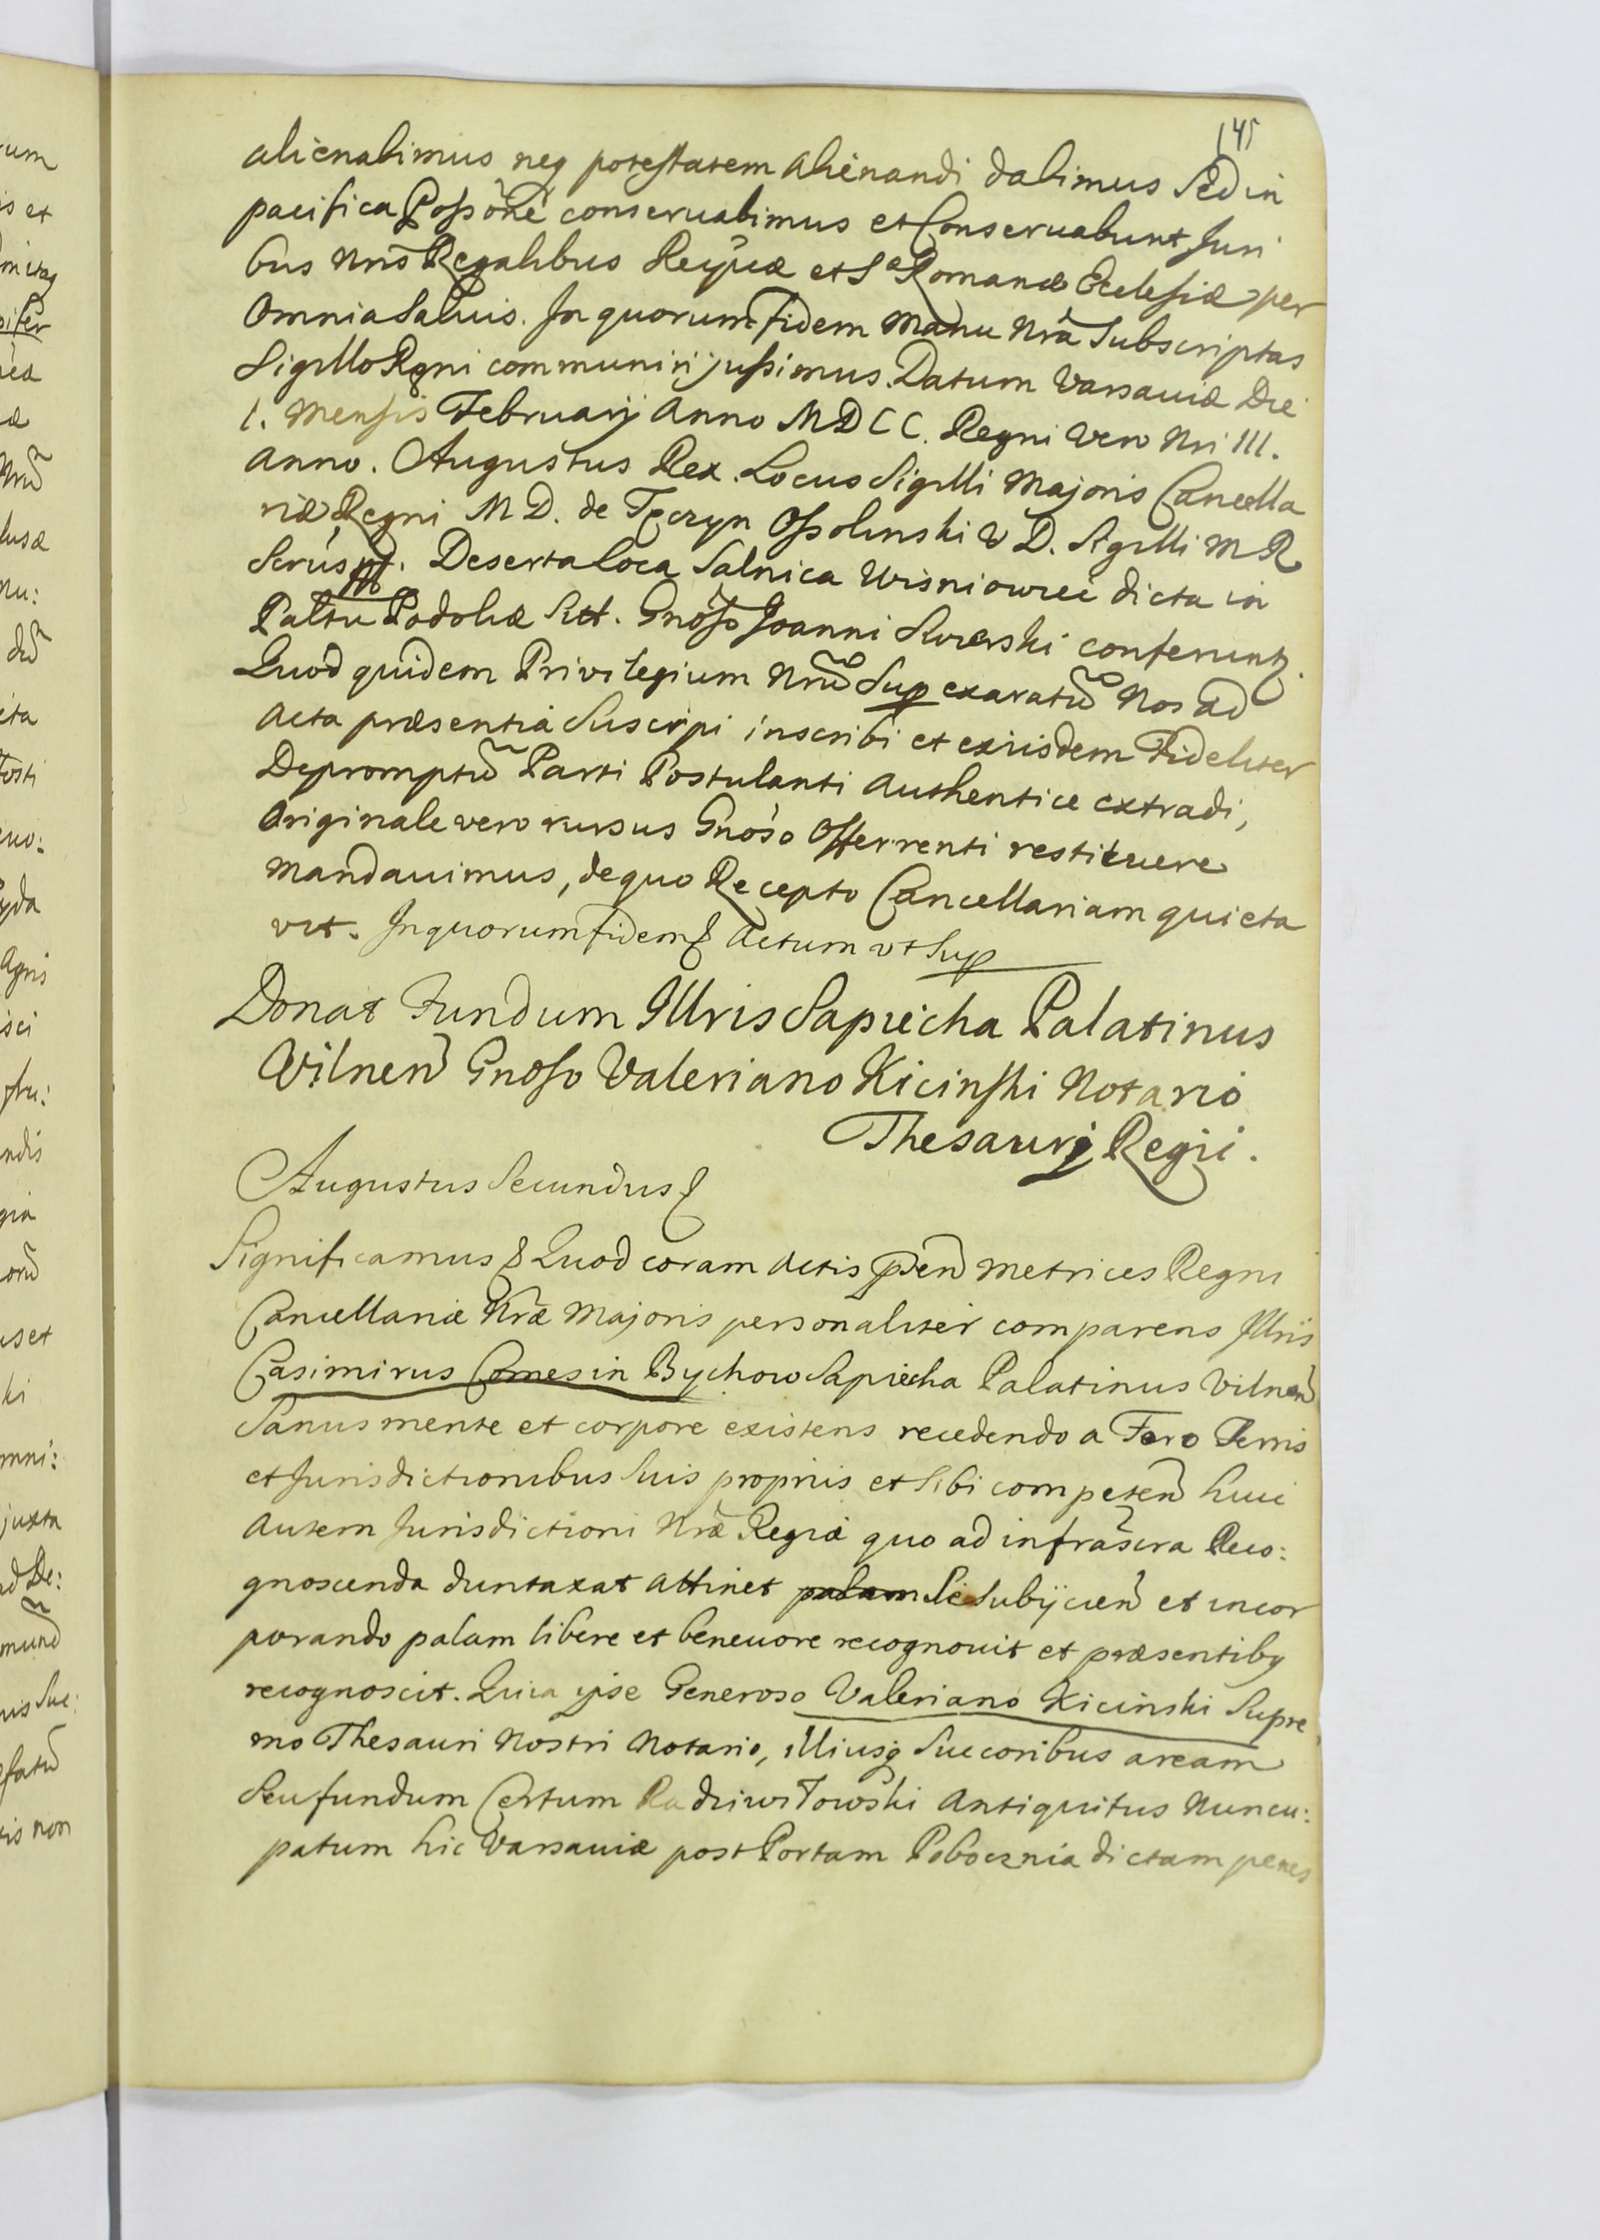 145
alienabimus neq potestatem alienandi dabimus Sed in
pacifica Possõne conservabimus et Conservabunt Juri
bus Nris Regalibus Reipcæ et Sæ Romanæ Ecclesiæ per
Omnia Salvis. In quorum fidem Manu Nra Subscriptas
Sigillo Regni communiri jussimus. Datum Varsaviæ Die
1. Mensis Februarij Anno MDCC. Regni vero Nri III.
Anno. Augustus Rex. Locus Sigilli Majoris Cancella
riæ Regni M D. de Tęczyn Ossolinski V D. Sigilli M R
Deserta loca Salnica Wisniowiec dicta in
Palttu Podoliæ Sitt. Gnoso Joanni conferunt.
Quod quidem Privilegium Nrũ Sup exaratũ Nos ad
Acta præsentia Suscipi inscribi et exiisdem Fideliter
Depromptũ Parti Postulanti Authentice extradi,
Originale vero rursus Gnoso Offerrenti restituere
mandavimus, de quo Recepto Cancellariam quieta
vit. In quorum fidem & Actum ut Sup
Donat Fundum Illris Sapiecha Palatinus
Vilnen Gnoso Valeriano Kicinski Notario
Thesaurj Regii.
Augustus Secundus &
Significamus & Quod coram Actis p̃sen Metrices Regni
Cancellariæ Nræ Majoris personaliter comparens Illris
Casimirus Comes in Bychow Sapiecha Palatinus Vilnen
Sanus mente et corpore existens recedendo a Foro Terris
et Jurisdictionibus Suis propriis et Sibi competen huic
Autem Jurisdictioni Nræ Regiæ quo ad infrascra Reco:
gnoscenda duntaxat attinet palam Se Subijcien et incor
porando palam libere et benevore recognovit et præsentibq
recognoscit. Quia ipse Generoso Valeriano Kicinski Supre
mo Thesauri Nostri Notario, illiusq Succoribus aream
Seu fundum Certum Radziwiłowski Antiquitus Nuncu:
patum hic Varsaviæ post Portam Poboeznia dictam penes